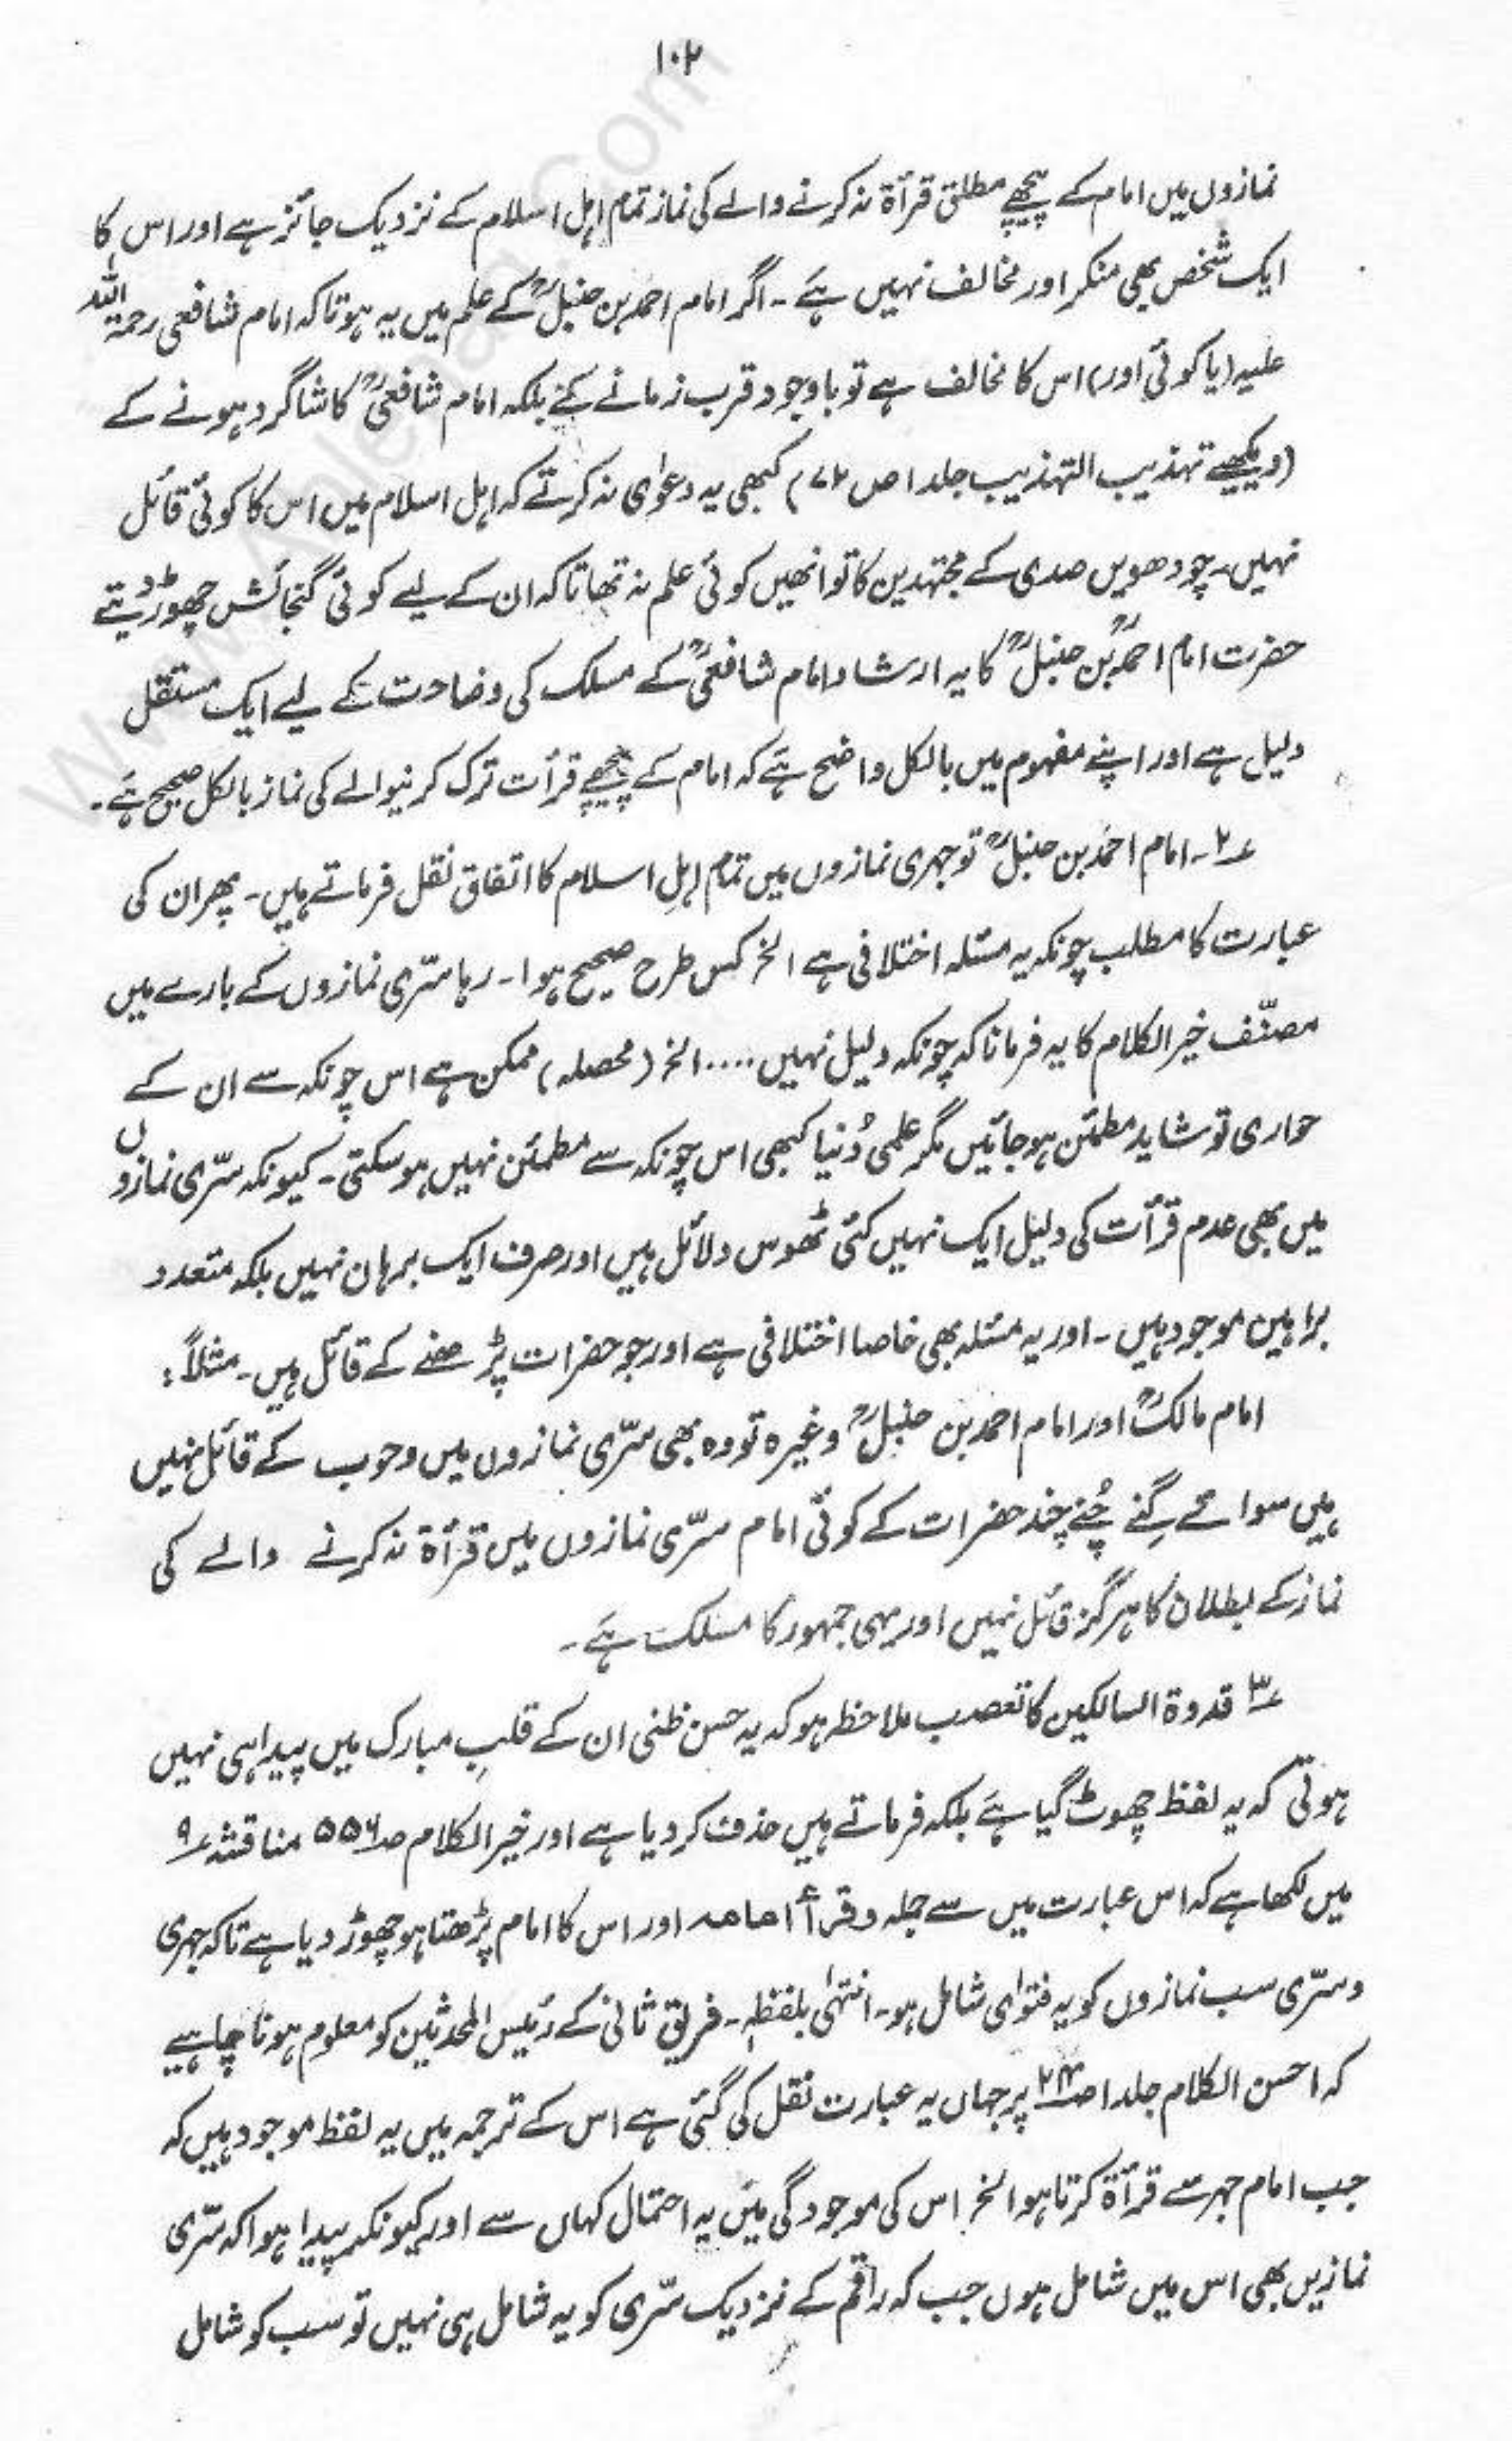 ۱۰۲
نمازوں میں امام کے پیچھے مطلق قرأۃ نہ کرنے والے کی نماز تمام اہل اسلام کے نزدیک جائز ہے اور اس کا
ایک شخص بھی منکر اور مخالف نہیں ہے ۔ اگر امام احمد بن حنبلؒ کے علم میں یہ ہوتا کہ امام شافعی رحمۃ اللہ
علیہ (یا کوئی اور) اس کا مخالف ہے تو باوجود قرب زمانے کے بلکہ امام شافعیؒ کا شاگرد ہونے کے
(دیکھیے تہذیب التہذیب جلد ۱ ص ۷۲) کبھی یہ دعوٰی نہ کرتے کہ اہل اسلام میں اس کا کوئی قائل
نہیں۔ چودھویں صدی کے مجتہدین کا تو انھیں کوئی علم نہ تھا تاکہ ان کے لیے کوئی گنجائش چھوڑ دیتے
حضرت امام احمدؒ بن حنبلؒ کا یہ ارشاد امام شافعیؒ کے مسلک کی وضاحت کے لیے ایک مستقل
دلیل ہے اور اپنے مفہوم میں بالکل واضح ہے کہ امام کے پیچھے قرأت ترک کرنیوالے کی نماز بالکل صحیح ہے۔
۲؎۔ امام احمد بن حنبلؒ تو جہری نمازوں میں تمام اہلِ اسلام کا اتفاق نقل فرماتے ہیں۔ پھر ان کی
عبارت کا مطلب چونکہ یہ مسئلہ اختلافی ہے الخ کس طرح صحیح ہوا۔ رہا سرّی نمازوں کے بارے میں
مصنّف خیر الکلام کا یہ فرمانا کہ چونکہ دلیل نہیں .... الخ (محصلہ) ممکن ہے اس چونکہ سے ان کے
حواری تو شاید مطمئن ہو جائیں مگر علمی دُنیا کبھی اس چونکہ سے مطمئن نہیں ہو سکتی۔ کیونکہ سرّی نمازوں
میں بھی عدم قرأت کی دلیل ایک نہیں کئی ٹھوس دلائل ہیں اور صرف ایک برہان نہیں بلکہ متعدد
براہین موجود ہیں ۔ اور یہ مسئلہ بھی خاصا اختلافی ہے اور جو حضرات پڑھنے کے قائل ہیں۔ مثلاً :
امام مالکؒ اور امام احمد بن حنبلؒ وغیرہ تو وہ بھی سرّی نمازوں میں وجوب کے قائل نہیں
ہیں سوائے گِنے چُنے چند حضرات کے کوئی امام سرّی نمازوں میں قرأۃ نہ کرنے والے کی
نماز کے بطلان کا ہرگز قائل نہیں اور یہی جمہور کا مسلک ہے ۔
۳؎ قدوۃ السالکین کا تعصب ملاحظہ ہو کہ یہ حسن ظنی ان کے قلبِ مبارک میں پیدا ہی نہیں
ہوتی کہ یہ لفظ چھوٹ گیا ہے بلکہ فرماتے ہیں حذف کر دیا ہے اور خیر الکلام صـ ۵۵۶ مناقشہ ۹؎
میں لکھا ہے کہ اس عبارت میں سے جملہ وقرأ امامہ اور اس کا امام پڑھتا ہو چھوڑ دیا ہے تاکہ جہری
و سرّی سب نمازوں کو یہ فتوٰی شامل ہو۔ انتہٰی بلفظہٖ۔ فریق ثانی کے رئیس المحدثین کو معلوم ہونا چاہیے
کہ احسن الکلام جلد ۱ صـ پر جہاں یہ عبارت نقل کی گئی ہے اس کے ترجمہ میں یہ لفظ موجود ہیں کہ
جب امام جہر سے قرأۃ کرتا ہو الخ اس کی موجودگی میں یہ احتمال کہاں سے اور کیونکر پیدا ہوا کہ سرّی
نمازیں بھی اس میں شامل ہوں جب کہ راقم کے نزدیک سرّی کو یہ شامل ہی نہیں تو سب کو شامل